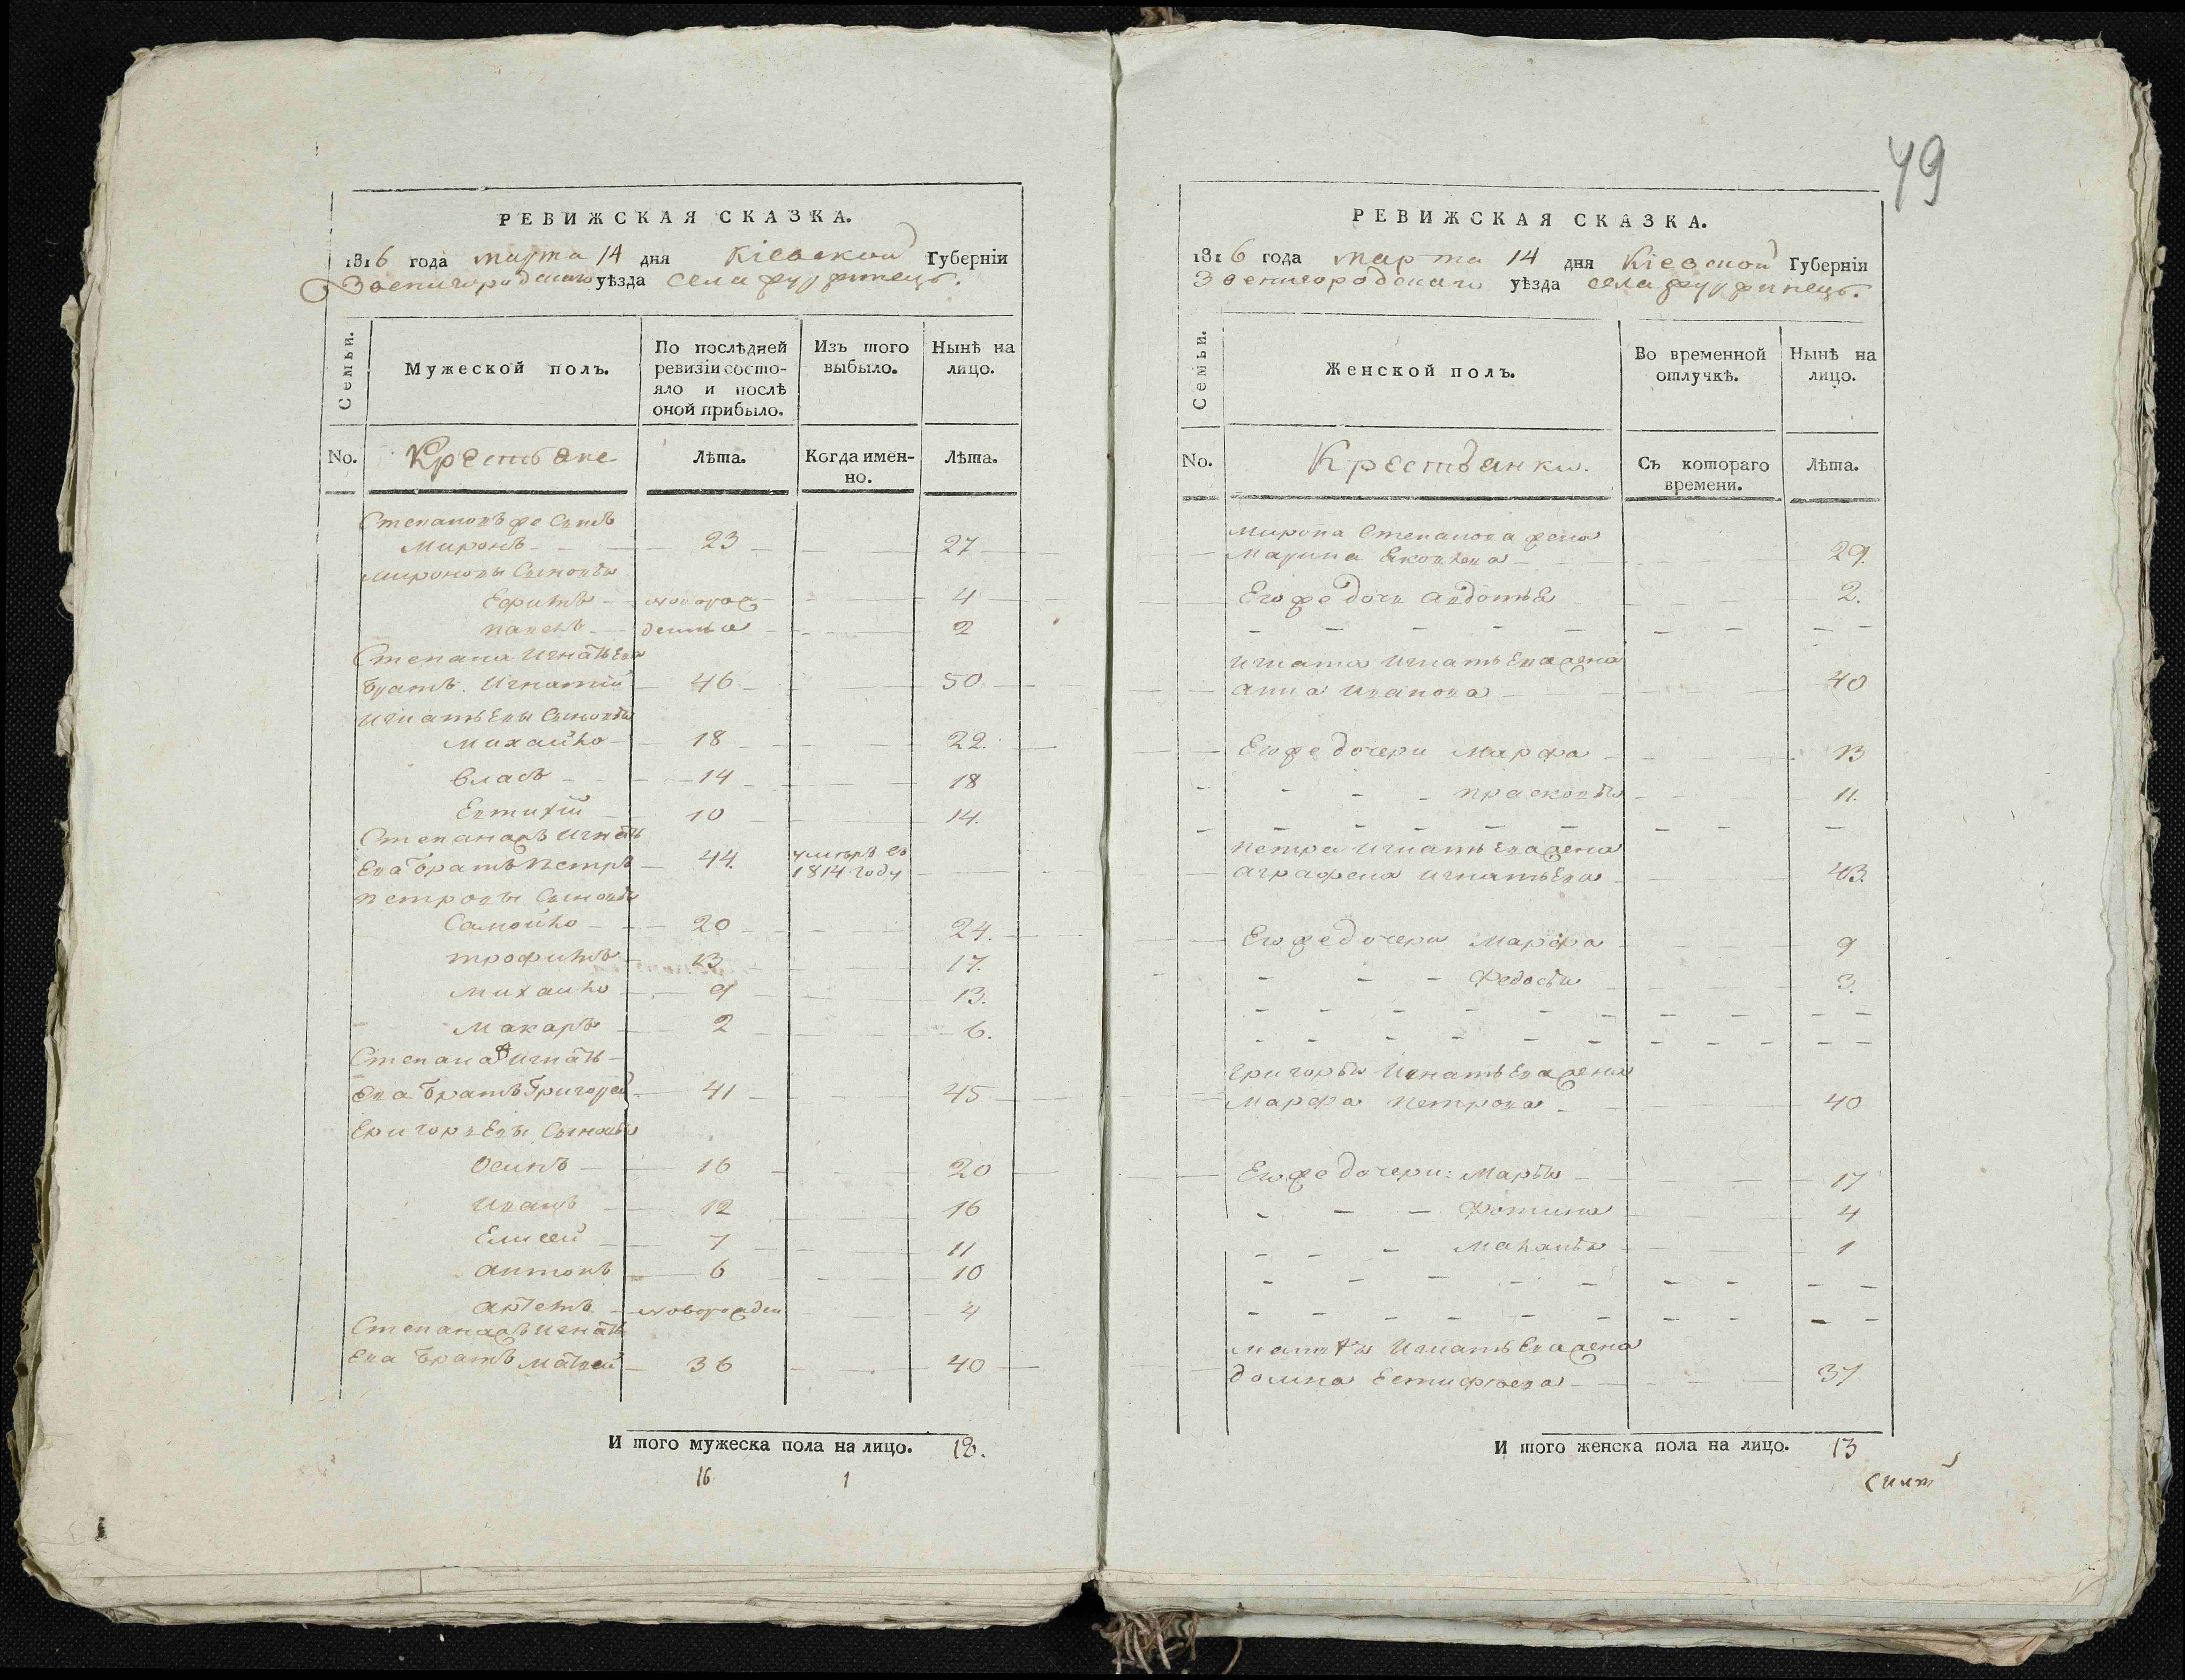 49
РЕВИЖСКАЯ СКАЗКА.
1816 года марта 14 дня Кіевской Губерніи
Звенигородскаго уѣзда села
Семьи.
Мужеской полъ.
По послѣдней ревизіи состо-
яло и послѣ
оной прибыло.
Изъ того выбыло.
Нынѣ на лицо.
No.
Крестьяне
Лѣта.
Когда имен-
но.
Лѣта.
Степановъ же сынъ
Миронъ 23 27
Мироновы сыновья
Ефимъ новорож 4
денныя 2
Степана Игнатьева
братъ Игнатій 46 50
Игнатьевы сыновья
Михайло 18 22.
Власъ 14 18
Евтихій 10 14.
Степана жъ Игнать
ева братъ Петръ 44. умеръ въ
1814 году
Петровы сыновья
Самойло 20 24.
Трофимъ 13 17.
Михайло 9 13.
Макаръ 2 6.
Степана ж Игнать
ева братъ Григорей 41 45
Григорьевы сыновья
Осипъ 16 20
Иванъ 12 16
Елисей 7 11
Антонъ 6 10
Артемъ новорожден 4
Степана жъ Игнать
ева братъ Матвей 36 40
И того мужеска пола на лицо. 18.
16 1
РЕВИЖСКАЯ СКАЗКА.
1816 года марта 14 дня Кіевской Губерніи
Звенигородскаго уѣзда села
Семьи.
Женской полъ.
Во временной
отлучкѣ.
Нынѣ на
лицо.
No.
Крестьянки.
Съ котораго
времени.
Лѣта.
Мирона Степанова жена
Марина Яковлева 29.
Его же дочь Авдотья 2.
Игнатія Игнатьева жена
Анна Иванова 40
Его же дочери Марфа 13
Прасковья 11.
Петра Игнатьева жена
Аграфена Игнатьева 43.
Его же дочери Марфа 9
Федосья 3.
Григорья Игнатьева жена
Марфа Петрова 40
Его же дочери: Марья 17
Фотина 4
Маланья 1
Матвѣя Игнатьева жена
Домна Естифѣева 37
И того женска пола на лицо. 13